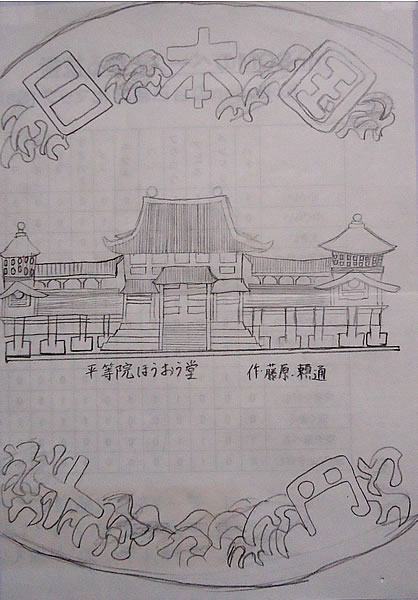 日本国
平等院ほうおう堂 作・藤原・頼通
十円